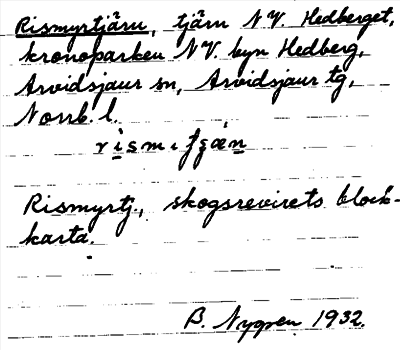 Rismyrtjärn, tjärn NV. Hedberget,
kronoparken NV. byn Hedberg,
Arvidsjaur sn, Arvidsjaur tg,
Norrb. l.
Rismyrtj., skogsrevirets block-
karta.
B. Nygren 1932.